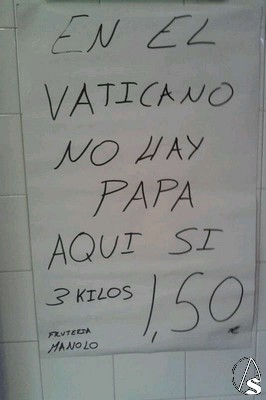 EN EL
VATICANO
NO HAY
PAPA
AQUI SI
3 KILOS 1,50 €
FRUTERIA
MANOLO